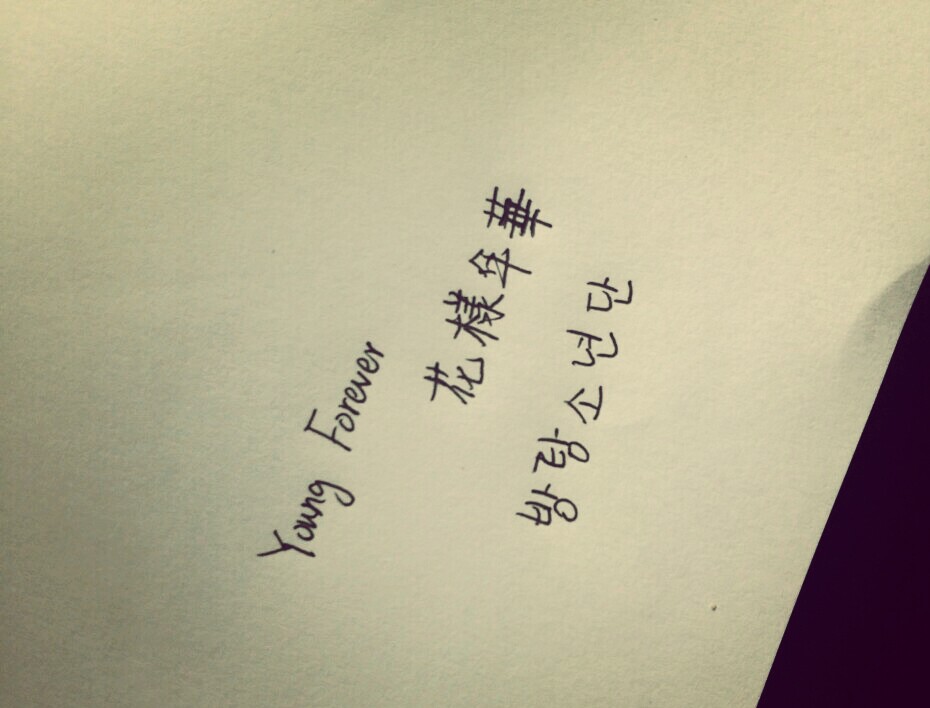 Young Forever
花樣年華
방탄소년단